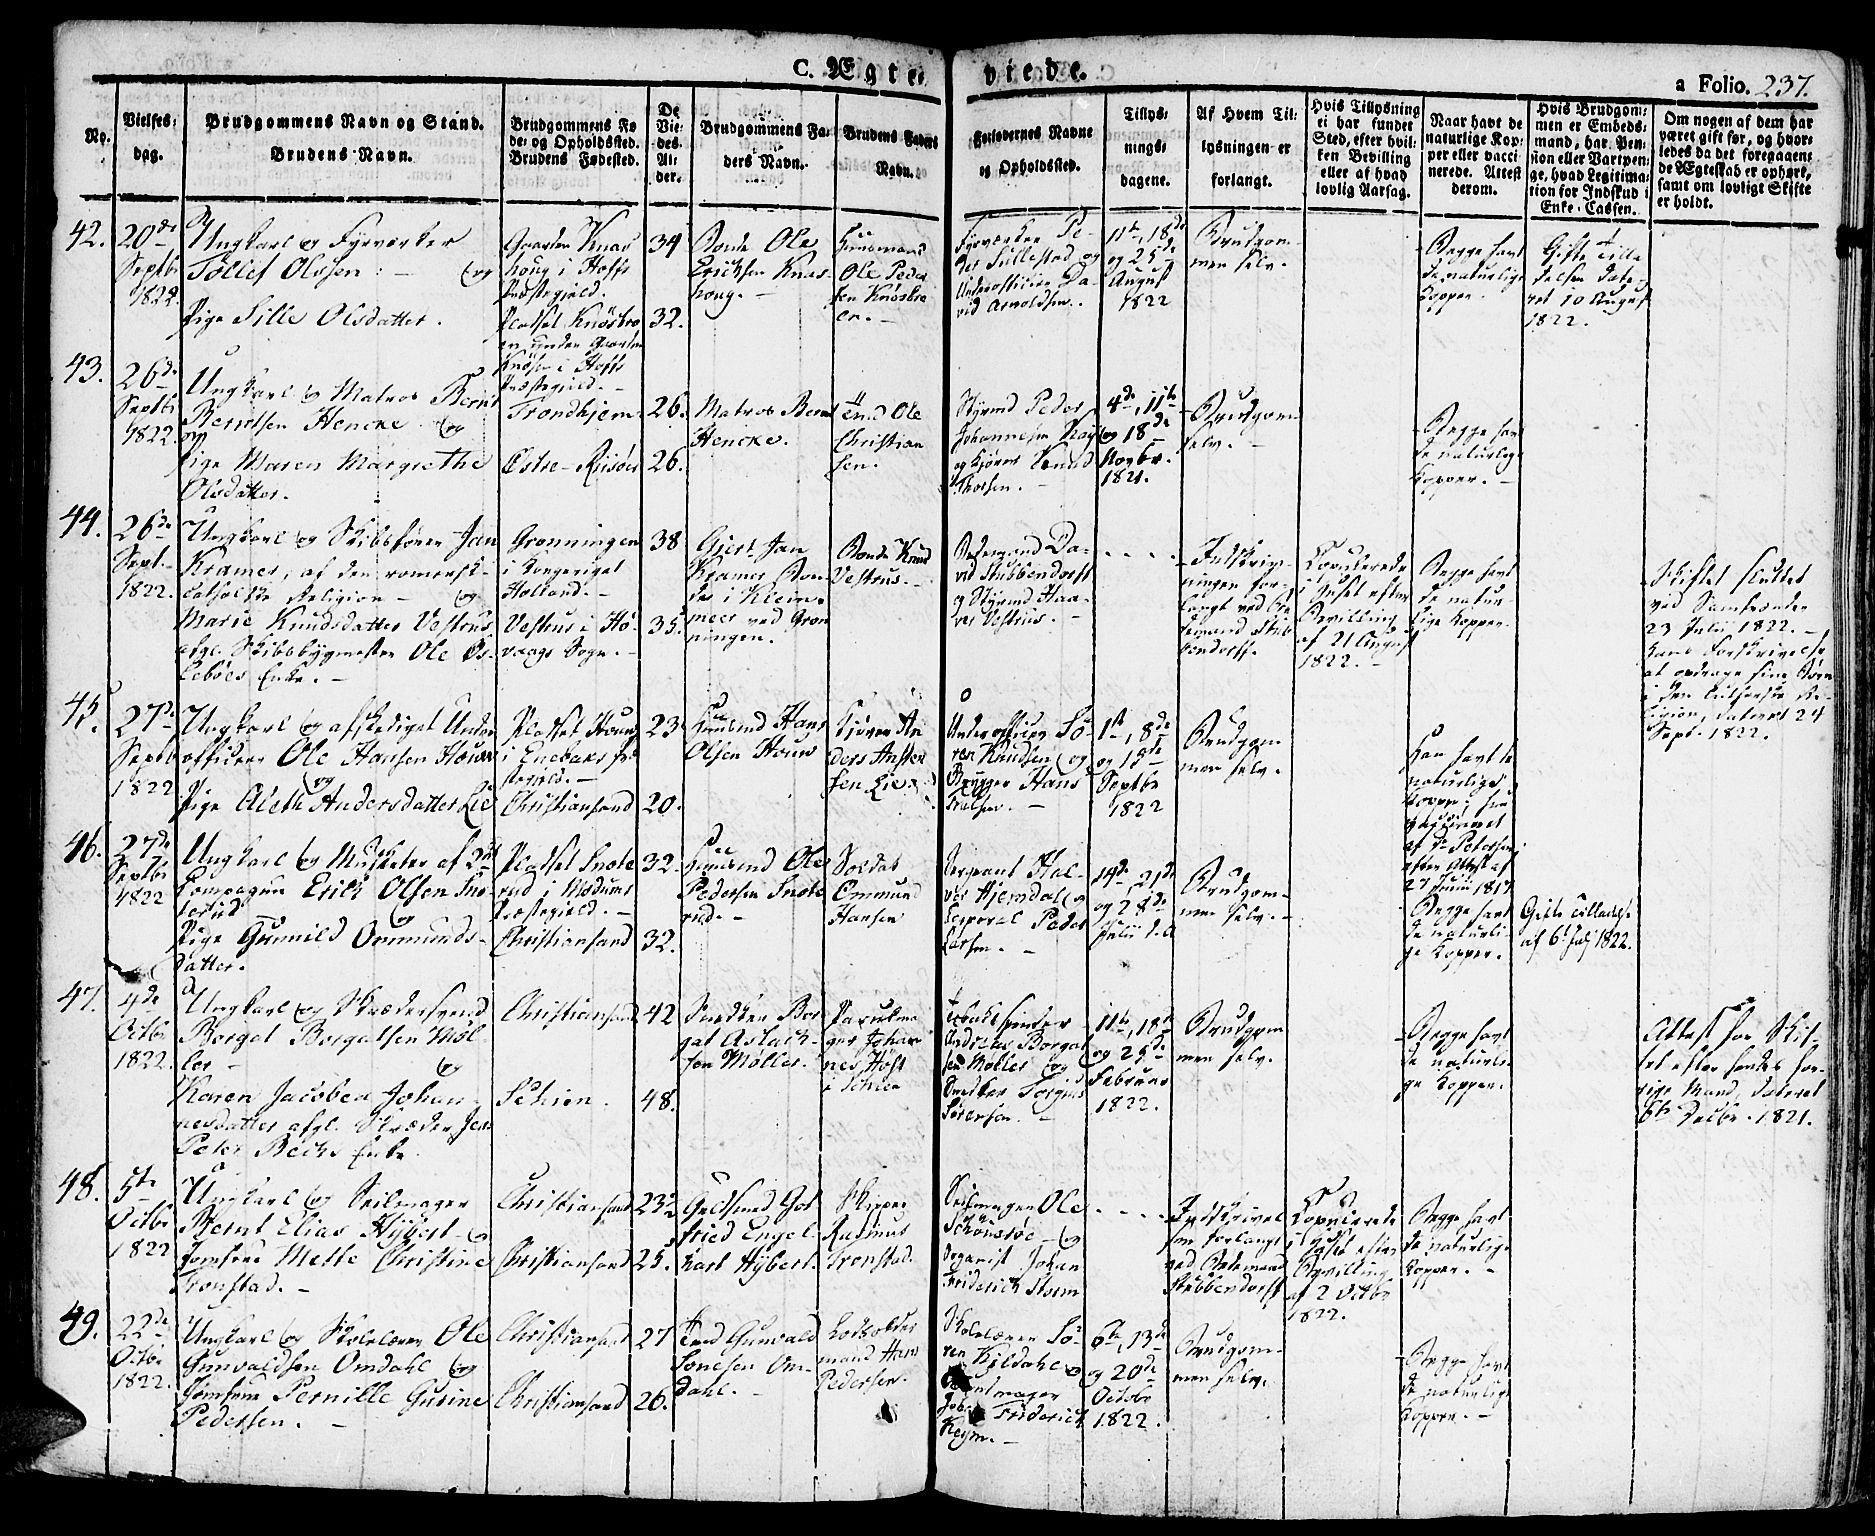 C. Ægte-
viede.
a Folio. 237.
No.
Vielses-
dag.
Brudgommens Navn og Stand.
Brudens Navn.
Brudgommens Fø
de- og Opholdssted.
Brudens Fødested.
De
Vie-
des
Al-
der.
Brudgommens Fa-
ders Navn.
Brudens Faders
Navn.
Forlovernes Navne
og Opholdssted.
Tillys-
nings-
dagene.
Af Hvem Til-
lysningen er
forlangt.
Hvis Tillysning
ei har fundet
Sted, efter hvil-
ken Bevilling
eller af hvad
lovlig Aarsag.
Naar havt de
naturlige Kop-
per eller vacci-
nerede. Attest
derom.
Hvis Brudgom-
men er Embeds-
mand, har Pen-
sion eller Vartpen-
ge, hvad Legitima-
tion for Indskud i
Enke-Cassen.
Om nogen af dem har
været gift før, og hvor-
ledes da det foregaaen-
de Ægteskab er ophørt,
samt om lovligt Skifte
er holdt.
42.
20de
Septbr
1822
Ungkarl og Fyrværker
Tollef Olssen. - og
Pige Sille Olsdatter.
Gaarden Knas
houg i Hoffs
Præstegjeld.
Pladset Knøsbro
en under Gaarden
Knøsen i Hoffs
Præstegjeld. -
34
32.
Bonde Ole
Ericksen Knas-
houg. -
Huusmand
Ole Peder
sen Knøsbro
en. -
Fyrværker Pe-
der Sillestad og
Underofficier Da-
vid Arnoldsen.
11te, 18de
og 25de
August
1822
Brudgom-
men selv.
Begge havt
de naturlige
Kopper.
Gifte Tilla
delsen date-
ret 10 August
1822.
43.
26de
Septbr
1822.
Ungkarl og Matros Bernt
Berntsen Hencke. og
Pige Maren Margrethe
Olsdatter.
Trondhjem.
Østre-Riisøer
26.
26.
Matros Bernt
Hencke.
Tmd Ole
Christian
sen.
Styrmd Peder
Johannesen
og Kjører Knud
Thorsen. -
4de, 11te
og 18de
Novbr.
1821.
Brudgom
selv. -
Begge havt
de naturlig
Kopper. -
44.
26de
Sept.
1822.
Ungkarl og Skibsfører Jan
Kramer, af den romersk-
catholske Religion - og
Marie Knudsdatter Vestrus
afgl. Skibsbygmester Ole Os-
lebøes Enke. -
Gronningen
i Kongeriget
Holland. -
Vestrus i Hø-
vaags Sogn. -
38
35.
Giert Jan
Kramer Bon-
de i Klein-
meer ved Gron
ningen.
Bonde Knud
Vestrus. -
Bedemand Da-
vid Stubbendorff
og Styrmd Haa-
ver Vestrus. -
- - - -
Indskriv-
ningen for-
langt ved Be
demand Stub
bendorff.
Copulerede
i Huset efter
Bevilling
af 21 August
1822. -
Begge havt
de natur-
lige Kopper.
Skiftet sluttet
ved Samfrænder
23 Julii 1822. -
Hans Forskrivelse
at opdrage sine Børn
i den lutherske Re-
ligion, dateret 24
Sept. 1822.
45.
27de
Septbr
1822
Ungkarl og afskediget Under
officier Ole Hansen Houen
og
Pige Aleth Andersdatter Lie
Pladset Houen
i Enebaks Præ
stegjeld. -
Christiansand
23
20.
Huusmd Hans
Olsen Houen
Kjører An
ders Ansten
sen Lie.
Underofficier Sø-
ren Knudsen og
Brygger Hans
Nielsen. -
1ste, 8de
og 15de
Septbr
1822
Brudgom
men selv.
Han havt de
naturlige
Kopper; hun
vaccineret
af Dr Petersen
efter Attest af
27 Junii 1817
46.
27de
Septbr
1822
Ungkarl og Musketer af 2det
Compagnie Erich Olsen Sno
terud og
Pige Gunnild Ommunds-
datter.
Pladset Snote
rud i Modums
Præstegjeld. -
Christiansand
32.
32.
Huusmd Ole
Pedersen Snote
rud. -
Soldat
Ommund
Hansen
Sergeant Hal-
vor Hjemdal og
Corporal Peder
Larsen. -
14de, 21de
og 28de
Julii d.A
Brudgom-
men selv. -
Begge havt
de naturli-
ge Kopper.
Gifte Tilladelse
af 6t Julj 1822.
47.
4de
Octbr
1822.
Ungkarl og Skrædersvend
Borgel Borgelsen Møl-
ler - og
Karen Jacobea Johan-
nesdatter afgl. Skræder Jens
Peter Bechs Enke
Christiansand
Schien.
42
48.
Snedker Bor
gel Aslach-
sen Møller.
Parykma
ger Johan
nes Høst
i Schien
Tobakspinder
Andreas Borgel
sen Møller og
Snedker Torgius
Sørensen. -
11te, 18de
og 25de
Februar
1822.
Brudgom
men selv.
Begge havt
de naturli-
ge Kopper.
Attest for Skif-
tet efter hendes for-
rige Mand, dateret
6te Decbr. 1821.
48.
5te
Octbr
1822
Ungkarl og Seilmager
Bernt Elias Hybert - og
Jomfrue Mette Christine
Tronstad. -
Christiansand
Christiansand
23½
25.
Guldsmed Got
fried Engel-
hart Hybert.
Skipper
Rasmus
Tronstad.
Seilmager Ole
Schønstøe - og
Organist Johan
Friderich Thiem
- - - -
Indskrivel
sen forlangt
ved Bedemand
Stubbendorff
Copulerede
i Huset efter
Bevilling
af 2 Octbr
1822.
Begge havt
de naturlige
Kopper. -
49.
22de
Octbr
1822.
Ungkarl og Skolelærer Ole
Gunvaldsen Omdahl og
Jomfrue Pernille Gurine
Pedersen. -
Christiansand
Christiansand
27
26.
Tmd Gunvald
Tønesen Om-
dahl. -
Lodsolder
mand Hans
Pedersen.
Skolelærer Sø-
ren Kjeldahl og
Friderich
Keym. -
6te, 13de
og 20de
Octobr
1822.
Brudgom-
men selv.
Begge havt
de naturlige
Kopper. -